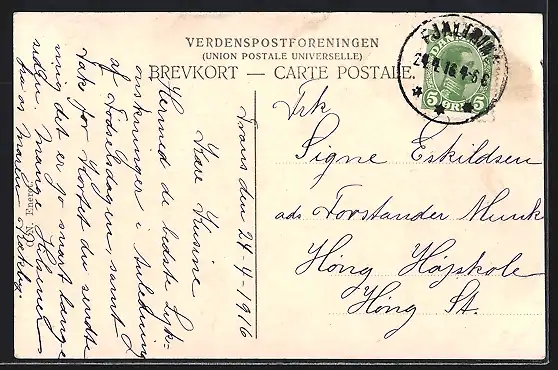 VERDENSPOSTFORENINGEN
(UNION POSTALE UNIVERSELLE)
BREVKORT — CARTE POSTALE.
24.4.16. 4-6 E
5 ØRE 5
Frk
Signe Eskildsen
ads Forstander Munk
Høng Højskole
Høng St.
Trans den 24-4-1916
Kære Kusine
Hermed de bedste Lyk-
ønskninger i Anledning
af Fødselsdagen, samt
Tak for Kortet du sendte
mig det er jo snart længe
siden. Mange Hilsener
fra os Maren
Eneret